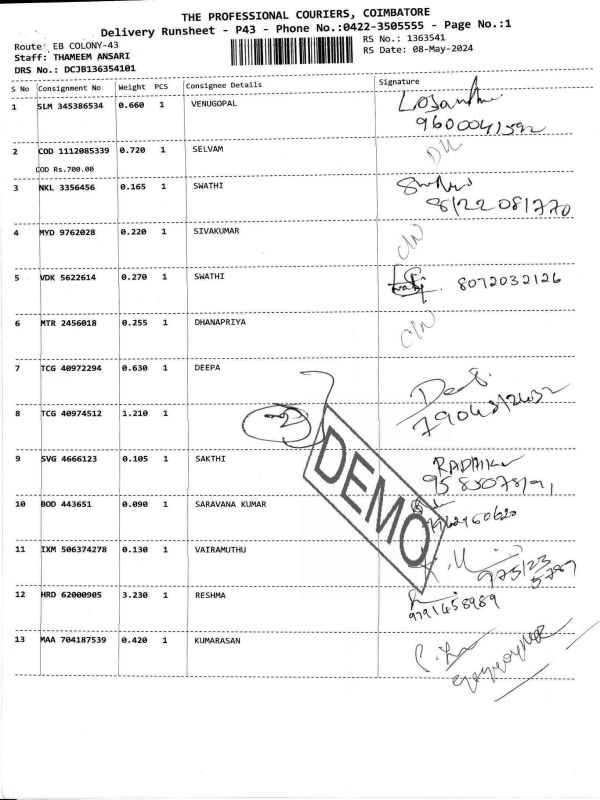 THE PROFESSIONAL COURIERS, COIMBATORE
Delivery Runsheet - P43 - Phone No.:0422-3505555 - Page No.:1
Route: EB COLONY-43
RS No.: 1363541
Staff: THAMEEM ANSARI
RS Date: 08-May-2024
DRS No.: DCJB136354101
S No Consignment No Weight PCS Consignee Details Signature
1 SLM 345386534 0.660 1 VENUGOPAL
2 COD 1112085339 0.720 1 SELVAM
COD Rs.700.00
3 NKL 3356456 0.165 1 SWATHI
8122081770
4 MYD 9762028 0.220 1 SIVAKUMAR
5 VDK 5622614 0.270 1 SWATHI 8072032126
6 MTR 2456018 0.255 1 DHANAPRIYA
7 TCG 40972294 0.630 1 DEEPA
8 TCG 40974512 1.210 1
9 SVG 4666123 0.105 1 SAKTHI
10 BOD 443651 0.090 1 SARAVANA KUMAR
11 IXM 506374278 0.130 1 VAIRAMUTHU
12 HRD 62000905 3.230 1 RESHMA
9791458989
13 MAA 704187539 0.420 1 KUMARASAN
DEMO